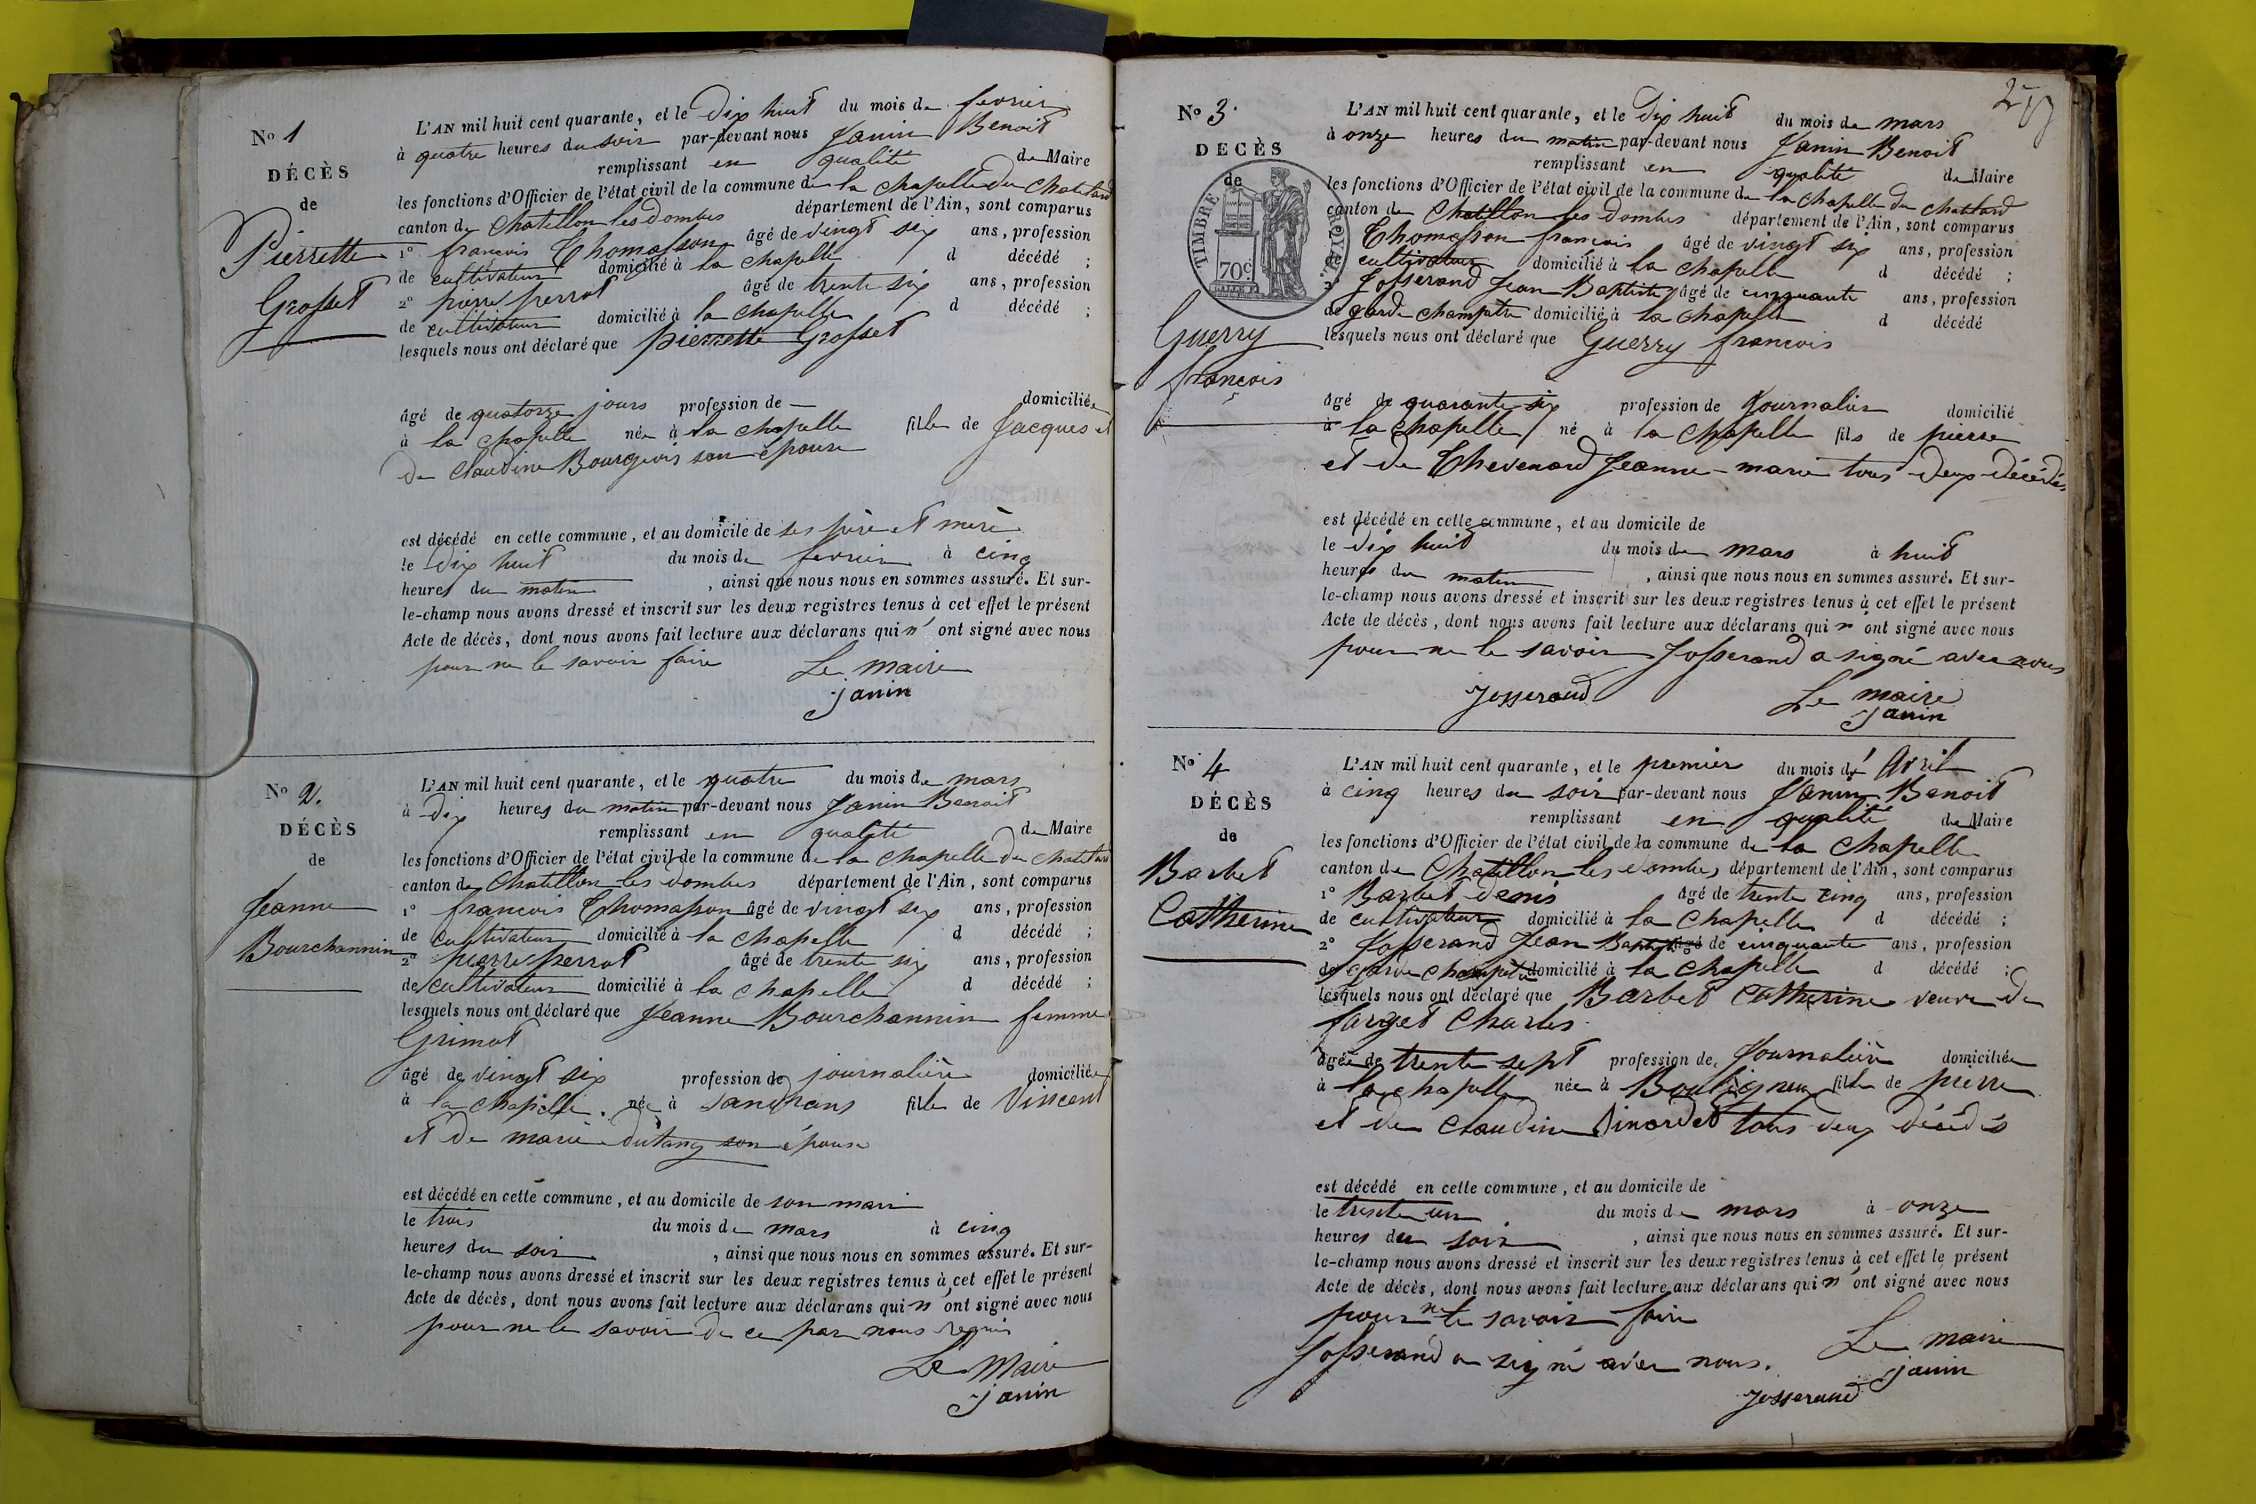 No 1
DÉCÈS
de
Pierrette
Grosset
L'AN mil huit cent quarante, et le dix huit du mois de fevrier
à quatre heures du soir par-devant nous Janin Benoit
remplissant en qualité de Maire
les fonctions d'Officier de l'état civil de la commune de la chapelle du chatelard
canton de Chatillon les dombes département de l'Ain, sont comparus
1° françois Thomasson âgé de vingt six ans, profession
de cultivateur domicilié à la chapelle d décédé ;
2° pierre perrot âgé de trente six ans, profession
de cultivateur domicilié à la chapelle d décédé ;
lesquels nous ont déclaré que pierrette Grosset
âgé de quatorze jours profession de — domiciliée
à la chapelle née à la chapelle fille de Jacques et
de Claudine Bourgeois son épouse
est décédé en cette commune, et au domicile de ses père et mère
le dix huit du mois de fevrier à cinq
heures du matin , ainsi que nous nous en sommes assuré. Et sur-
le-champ nous avons dressé et inscrit sur les deux registres tenus à cet effet le présent
Acte de décès, dont nous avons fait lecture aux déclarans qui n' ont signé avec nous
pour ne le savoir faire Le maire
janin
No 2.
DÉCÈS
de
Jeanne
Bourchannin
L'AN mil huit cent quarante, et le quatre du mois de mars
à dix heures du matin par-devant nous Janin Benoit
remplissant en qualité de Maire
les fonctions d'Officier de l'état civil de la commune de la chapelle du chatelard
canton de Chatillon les dombes département de l'Ain, sont comparus
1° françois Thomasson âgé de vingt six ans, profession
de cultivateur domicilié à la chapelle d décédé ;
2° pierre perrot âgé de trente six ans, profession
de cultivateur domicilié à la chapelle d décédé ;
lesquels nous ont déclaré que Jeanne Bourchannin femme
Grimot
âgé de vingt six profession de journalière domiciliée
à la chapelle. née à Sandrans fille de Vincent
et de marie dutang son épouse
est décédé en cette commune, et au domicile de son mari
le trois du mois de mars à cinq
heures du soir , ainsi que nous nous en sommes assuré. Et sur-
le-champ nous avons dressé et inscrit sur les deux registres tenus à cet effet le présent
Acte de décès, dont nous avons fait lecture aux déclarans qui n' ont signé avec nous
pour ne le savoir de ce par nous requis
Le Maire
janin
No 3.
DÉCÈS
de
TIMBRE ROYAL.
70c
Guerry
françois
L'AN mil huit cent quarante, et le dix huit du mois de mars
à onze heures du matin par-devant nous Janin Benoit
remplissant en qualité de Maire
les fonctions d'Officier de l'état civil de la commune de la chapelle du chatelard
canton de Chatillon les dombes département de l'Ain, sont comparus
Thomasson françois âgé de vingt six ans, profession
de cultivateur domicilié à la chapelle d décédé ;
2° Josserand Jean Baptiste âgé de cinquante ans, profession
de garde champêtre domicilié à la chapelle d décédé
lesquels nous ont déclaré que Guerry françois
âgé de quarante six profession de Journalier domicilié
à la Chapelle né à la chapelle fils de pierre
et de Thevenard Jeanne-marie tous deux décédés
est décédé en cette commune, et au domicile de
le dix huit du mois de mars à huit
heures du matin , ainsi que nous nous en sommes assuré. Et sur-
le-champ nous avons dressé et inscrit sur les deux registres tenus à cet effet le présent
Acte de décès, dont nous avons fait lecture aux déclarans qui n' ont signé avec nous
pour ne le savoir Josserand a signé avec nous
Josserand Le maire
janin
No 4
DÉCÈS
de
Barbet
Catherine
L'AN mil huit cent quarante, et le premier du mois d' Avril
à cinq heures du soir par-devant nous Janin Benoit
remplissant en qualité de Maire
les fonctions d'Officier de l'état civil de la commune de la Chapelle
canton de Chatillon les dombes département de l'Ain, sont comparus
1° Barbet denis âgé de trente cinq ans, profession
de cultivateur domicilié à la Chapelle d décédé ;
2° Josserand Jean Baptiste âgé de cinquante ans, profession
de garde champêtre domicilié à la Chapelle d décédé ;
lesquels nous ont déclaré que Barbet Catherine veuve de
farget Charles
âgée de trente sept profession de Journalière domiciliée
à la chapelle née à Bouligneux fille de pierre
et de Claudine Sinardet tous deux décédés
est décédé en cette commune, et au domicile de
le trente un du mois de mars à onze
heures du soir , ainsi que nous nous en sommes assuré. Et sur-
le-champ nous avons dressé et inscrit sur les deux registres tenus à cet effet le présent
Acte de décès, dont nous avons fait lecture aux déclarans qui n' ont signé avec nous
pour ne le savoir faire
Josserand a signé avec nous. Le maire
janin
Josserand